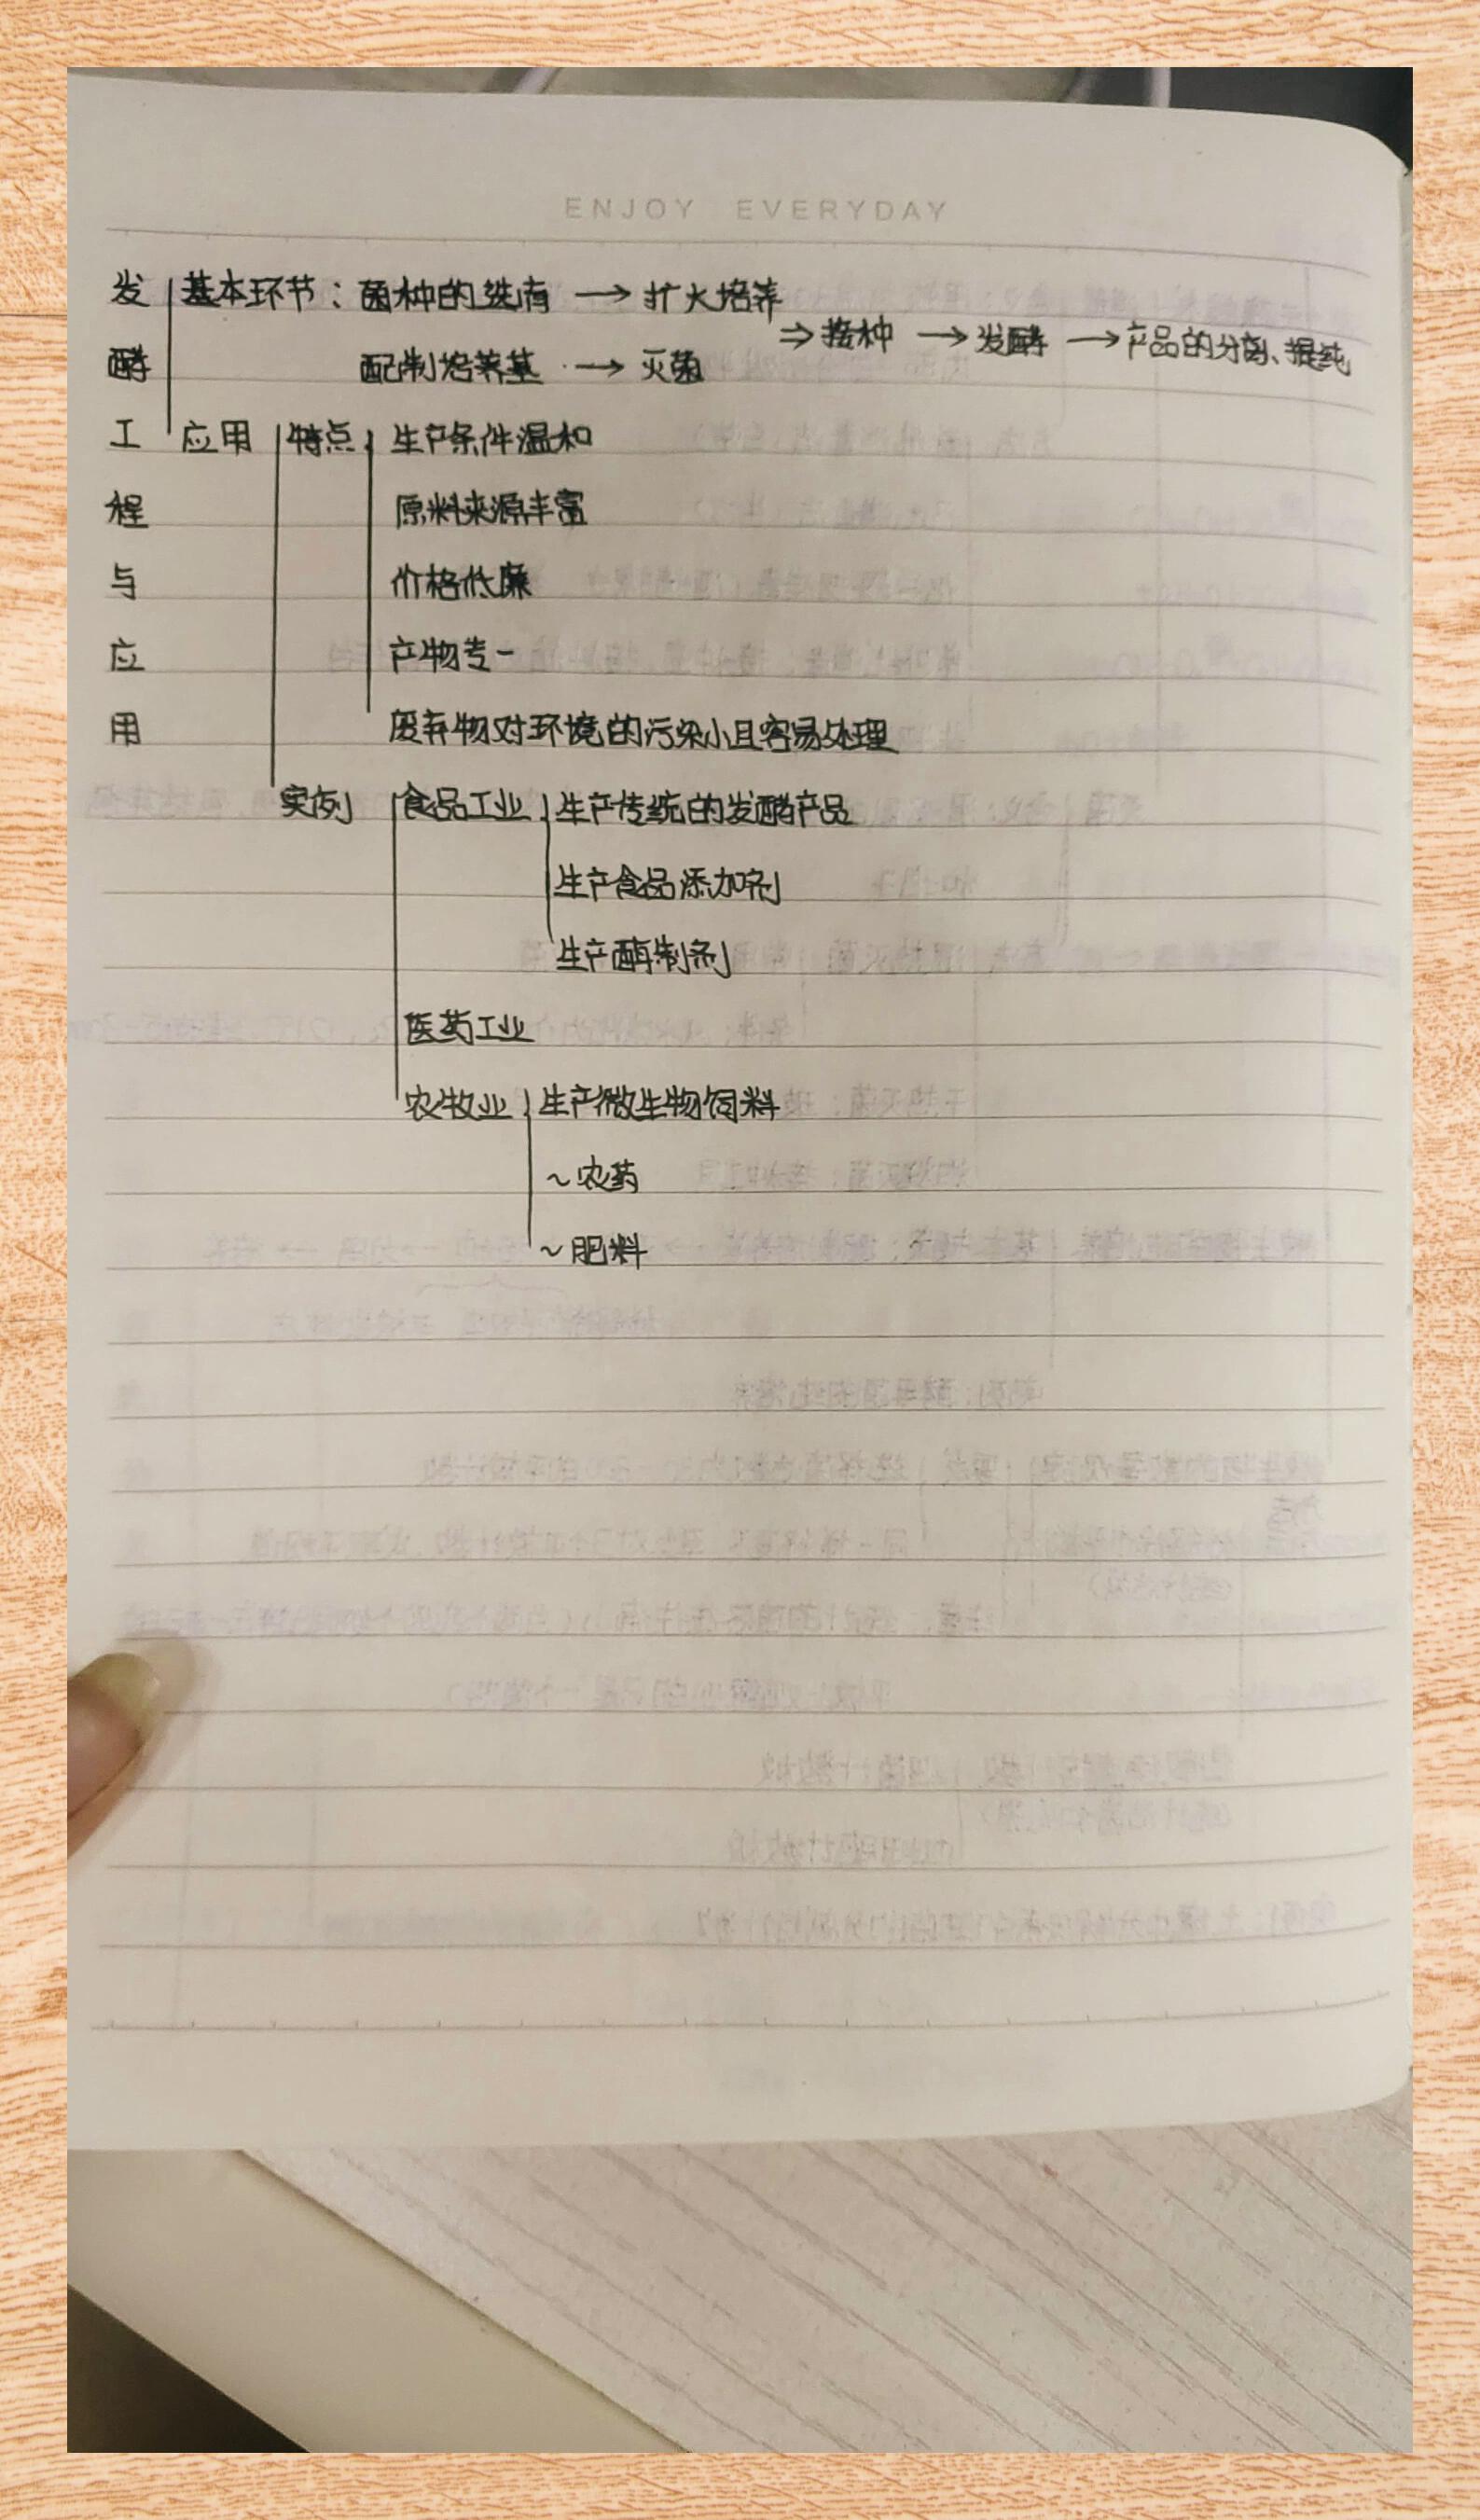 ENJOY EVERYDAY
发 基本环节：菌种的选育 → 扩大培养
⇒ 接种 → 发酵 → 产品的分离、提纯
酵 配制培养基 → 灭菌
工 应用 特点 生产条件温和
程 原料来源丰富
与 价格低廉
应 产物专一
用 废弃物对环境的污染小且容易处理
实例 食品工业 生产传统的发酵产品
生产食品添加剂
生产酶制剂
医药工业
农牧业 生产微生物饲料
~农药
~肥料